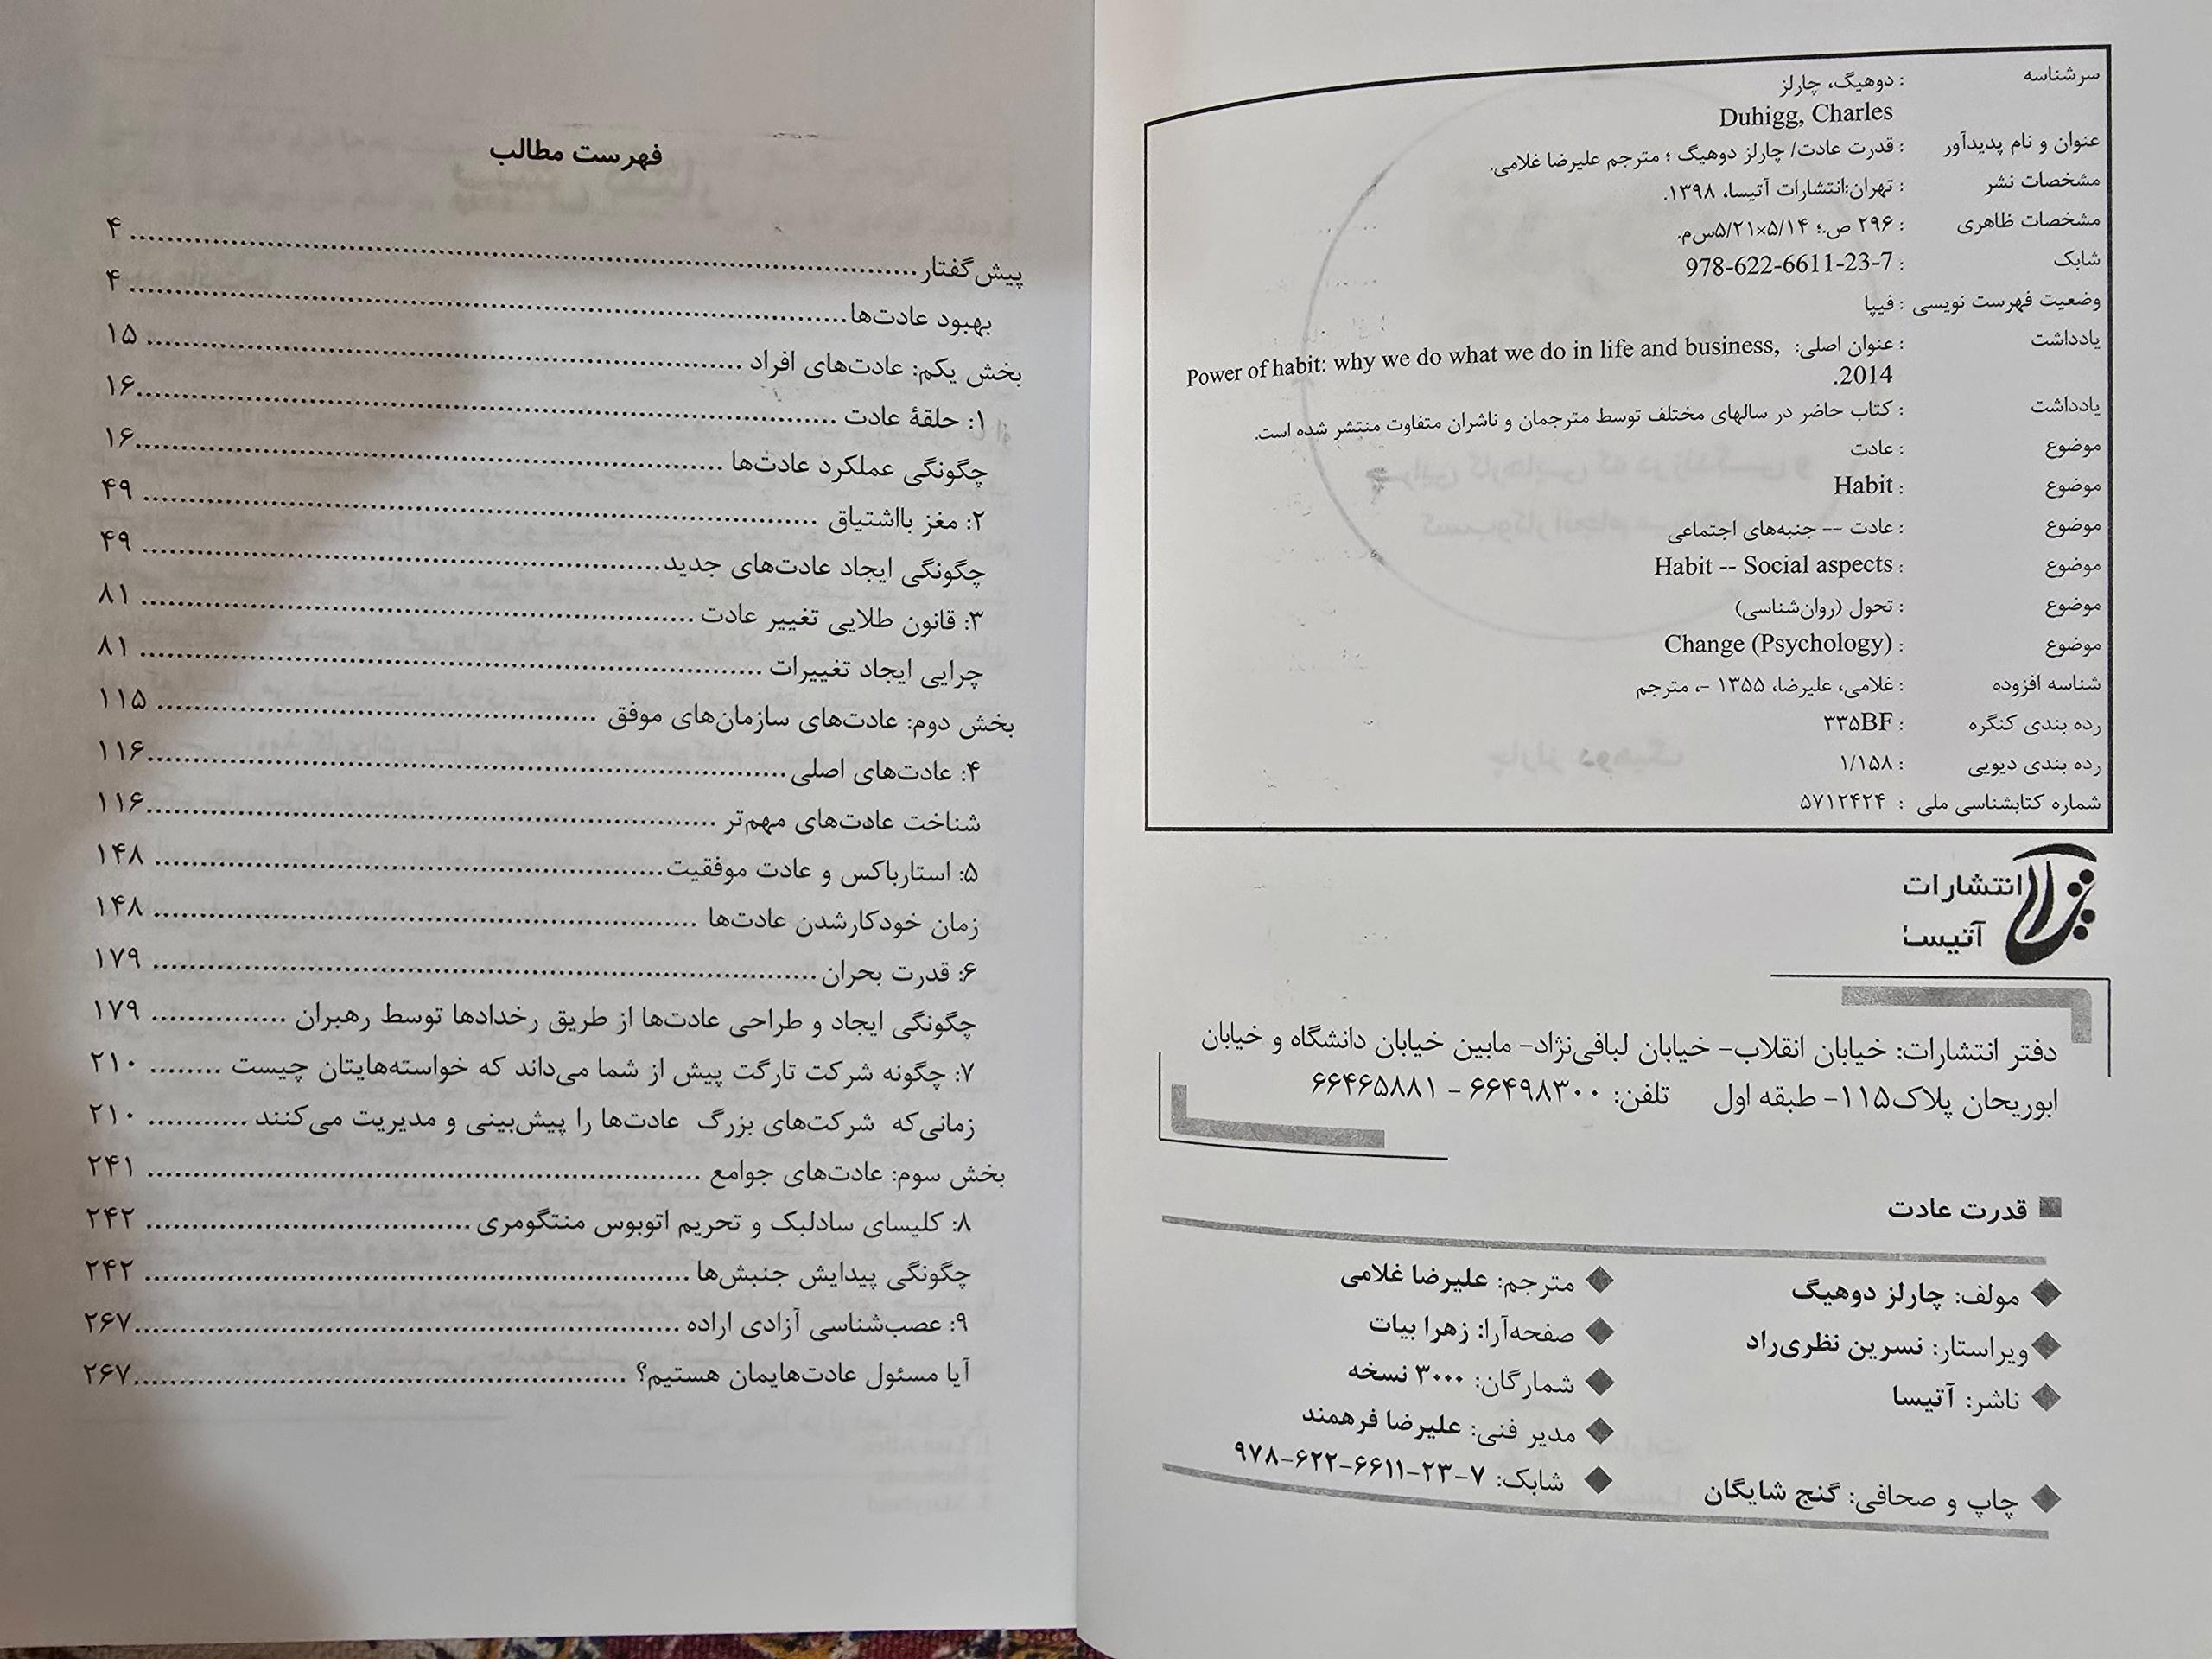 سرشناسه : دوهیگ، چارلز
Duhigg, Charles
عنوان و نام پدیدآور : قدرت عادت/ چارلز دوهیگ ؛ مترجم علیرضا غلامی.
مشخصات نشر : تهران:انتشارات آتیسا، ۱۳۹۸.
مشخصات ظاهری : ۲۹۶ ص.؛ ۵/۱۴×۵/۲۱س‌م.
شابک : 978-622-6611-23-7
وضعیت فهرست نویسی : فیپا
یادداشت : عنوان اصلی: Power of habit: why we do what we do in life and business,
2014.
یادداشت : کتاب حاضر در سالهای مختلف توسط مترجمان و ناشران متفاوت منتشر شده است.
موضوع : عادت
موضوع : Habit
موضوع : عادت -- جنبه‌های اجتماعی
موضوع : Habit -- Social aspects
موضوع : تحول (روان‌شناسی)
موضوع : Change (Psychology)
شناسه افزوده : غلامی، علیرضا، ۱۳۵۵ -، مترجم
رده بندی کنگره : ۳۳۵BF
رده بندی دیویی : ۱/۱۵۸
شماره کتابشناسی ملی : ۵۷۱۲۴۲۴
انتشارات
آتیسا
دفتر انتشارات: خیابان انقلاب- خیابان لبافی‌نژاد- مابین خیابان دانشگاه و خیابان
ابوریحان پلاک۱۱۵- طبقه اول تلفن: ۶۶۴۹۸۳۰۰ - ۶۶۴۶۵۸۸۱
قدرت عادت
مولف: چارلز دوهیگ
ویراستار: نسرین نظری‌راد
ناشر: آتیسا
چاپ و صحافی: گنج شایگان
مترجم: علیرضا غلامی
صفحه‌آرا: زهرا بیات
شمارگان: ۳۰۰۰ نسخه
مدیر فنی: علیرضا فرهمند
شابک: ۷-۲۳-۶۶۱۱-۶۲۲-۹۷۸
فهرست مطالب
پیش‌گفتار ........ ۴
بهبود عادت‌ها ........ ۴
بخش یکم: عادت‌های افراد ........ ۱۵
۱: حلقهٔ عادت ........ ۱۶
چگونگی عملکرد عادت‌ها ........ ۱۶
۲: مغز بااشتیاق ........ ۴۹
چگونگی ایجاد عادت‌های جدید ........ ۴۹
۳: قانون طلایی تغییر عادت ........ ۸۱
چرایی ایجاد تغییرات ........ ۸۱
بخش دوم: عادت‌های سازمان‌های موفق ........ ۱۱۵
۴: عادت‌های اصلی ........ ۱۱۶
شناخت عادت‌های مهم‌تر ........ ۱۱۶
۵: استارباکس و عادت موفقیت ........ ۱۴۸
زمان خودکارشدن عادت‌ها ........ ۱۴۸
۶: قدرت بحران ........ ۱۷۹
چگونگی ایجاد و طراحی عادت‌ها از طریق رخدادها توسط رهبران ........ ۱۷۹
۷: چگونه شرکت تارگت پیش از شما می‌داند که خواسته‌هایتان چیست ........ ۲۱۰
زمانی‌که شرکت‌های بزرگ عادت‌ها را پیش‌بینی و مدیریت می‌کنند ........ ۲۱۰
بخش سوم: عادت‌های جوامع ........ ۲۴۱
۸: کلیسای سادلبک و تحریم اتوبوس منتگومری ........ ۲۴۲
چگونگی پیدایش جنبش‌ها ........ ۲۴۲
۹: عصب‌شناسی آزادی اراده ........ ۲۶۷
آیا مسئول عادت‌هایمان هستیم؟ ........ ۲۶۷